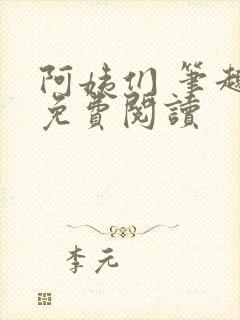 阿姨们 筆趣
免費閱讀
李元